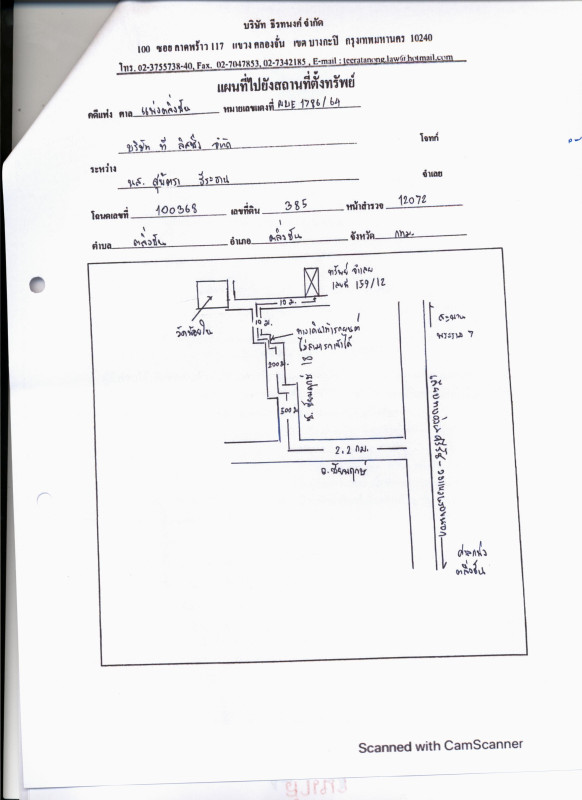 บริษัท ธีรทนงค์ จำกัด
100 ซอย ลาดพร้าว 117 แขวง คลองจั่น เขต บางกะปิ กรุงเทพมหานคร 10240
โทร. 02-3755738-40, Fax. 02-7047853, 02-7342185 , E-mail : teeratanong.law@hotmail.com
แผนที่ไปยังสถานที่ตั้งทรัพย์
คดีแพ่ง ศาล แพ่งตลิ่งชัน หมายเลขแดงที่ ผบE 1786/64
บริษัท ที ลิสซิ่ง จำกัด โจทก์
ระหว่าง
น.ส. สุจิตรา จำเลย
โฉนดเลขที่ 100368 เลขที่ดิน 385 หน้าสำรวจ 12072
ตำบล ตลิ่งชัน อำเภอ ตลิ่งชัน จังหวัด กทม.
ทรัพย์ จำเลย
เลขที่ 159/12
10 ม.
วัดน้อยใน
10 ม.
ทางเดินเท้ารถยนต์
ไม่สามารถเข้าได้
200 ม.
500 ม.
ซ. ชัยพฤกษ์
สะพาน
พระราม 7
2.2 กม.
ถ.ชัยพฤกษ์
ศาลแพ่ง
ตลิ่งชัน
Scanned with CamScanner